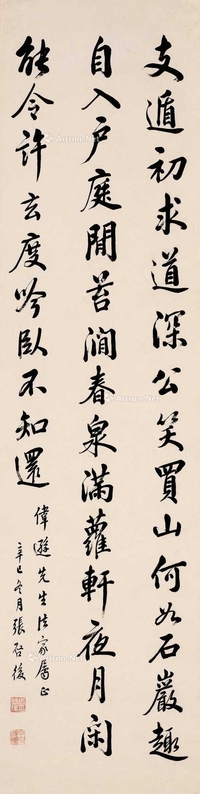 支遁初求道深公笑買山何如石巖趣
自入戶庭間苔澗春泉滿蘿軒夜月閑
能令許玄度吟臥不知還
偉遊先生法家屬正
辛巳冬月張啓後